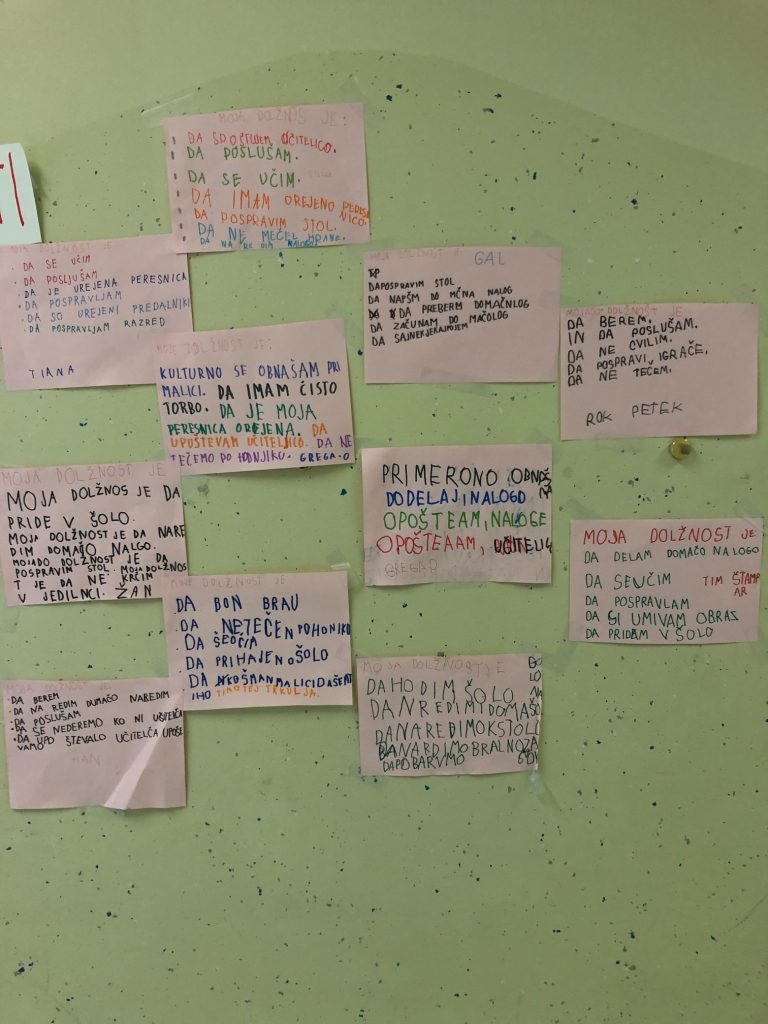 MOJA DOLŽNOS JE:
DA SPOŠTUJEM UČITELICO.
DA POSLUŠAM.
DA SE UČIM.
DA IMAM OREJENO PERESNICO.
DA POSPRAVIM STOL.
DA NE MEČEM HRANE.
DA NA RE DIM NALOGO.
MOJA DOLŽNOST JE
· DA SE UČIM
· DA POSLJUŠAM
· DA JE UREJENA PERESNICA
· DA POSPRAVLJAM
· DA SO UREJENI PREDALNIKI
· DA POSPRAVLJAM RAZRED
TIANA
MOJA DOLŽNOST JE GAL
DAPOSPRAVIM STOL
DA NAPŠM DO MČNA NALOG
DA PREBEREM DOMAČNLOG
DA ZAČUNAM DO MAČOLOG
MOJADO DOLŽNOST JE
DA BEREM.
IN DA POSLUŠAM.
DA NE CVILIM.
DA POSPRAVI IGRAČE.
DA NE TEČEM.
ROK PETEK
MOJE DOLŽNOST JE:
KULTURNO SE OBNAŠAM PRI
MALICI. DA IMAM ČISTO
TORBO. DA JE MOJA
PERESNICA OREJENA. DA
UPOŠTEVAM UČITELJICO. DA NE
TEČEMO PO HODNJIKU. GREGA-O
MOJA DOLŽNOST JE
MOJA DOLŽNOS JE DA
PRIDE V ŠOLO.
MOJA DOLŽNOST JE DA NARE
DIM DOMAČO NALGO.
MOJADO DOLŽNOST JE DA
POSPRAVIM STOL. MOJA DOLŽNOS
T JE DA NE KRČIM
V JEDILNCI. ŽAN
PRIMERONO OBNOŠ
DODELAJ, NALOGO NA
OPOŠTEAM, NALOGE
OPOŠTEAAM, UČITELJI
GREGA D
MOJA DOLŽNOST JE
DA DELAM DOMAČO NALOGO
DA SEUČIM TIM ŠTAMP
AR
DA POSPRAVLAM
DA SI UMIVAM OBRAZ
DA PRIDEM V ŠOLO
MOJE DOLŽNOST JE
DA BON BRAU
. DA NETEČEN POHONIKU
. DA ŠEDČIA
DA PRIHAJEN OŠOLO
TIMOTEJ TRKULJA.
MOJA DOLŽNOST JE:
· DA BEREM
· DA NA REDIM DUMAČO NAREDIM
· DA POSLUŠAM
· DA SE NEDEREMO KO NI UŠTELČA
· DA UPO ŠTEVALO UČITELČA UPOŠE
VAMO
TIAN
MOJA DOLŽNOSTJE
DAHODIM ŠOLO
DANREDIMIDOMAŠO
DANAREDIMOKSTOLI
DANARDIMOBRALNOZA
DAPOBARVMO